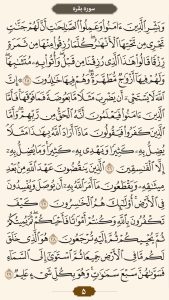 سوره بقره
وَبَشِّرِ الَّذِينَ ءَامَنُوا وَعَمِلُوا الصَّالِحَاتِ أَنَّ لَهُمْ جَنَّاتٍ
تَجْرِي مِنْ تَحْتِهَا الْأَنْهَارُ كُلَّمَا رُزِقُوا مِنْهَا مِنْ ثَمَرَةٍ
رِزْقًا قَالُوا هَٰذَا الَّذِي رُزِقْنَا مِنْ قَبْلُ وَأُتُوا بِهِ مُتَشَابِهًا
وَلَهُمْ فِيهَا أَزْوَاجٌ مُطَهَّرَةٌ وَهُمْ فِيهَا خَالِدُونَ ﴿٢٥﴾ إِنَّ
اللَّهَ لَا يَسْتَحْيِي أَنْ يَضْرِبَ مَثَلًا مَا بَعُوضَةً فَمَا فَوْقَهَا فَأَمَّا
الَّذِينَ ءَامَنُوا فَيَعْلَمُونَ أَنَّهُ الْحَقُّ مِنْ رَبِّهِمْ وَأَمَّا
الَّذِينَ كَفَرُوا فَيَقُولُونَ مَاذَا أَرَادَ اللَّهُ بِهَٰذَا مَثَلًا
يُضِلُّ بِهِ كَثِيرًا وَيَهْدِي بِهِ كَثِيرًا وَمَا يُضِلُّ بِهِ
إِلَّا الْفَاسِقِينَ ﴿٢٦﴾ الَّذِينَ يَنْقُضُونَ عَهْدَ اللَّهِ مِنْ بَعْدِ
مِيثَاقِهِ وَيَقْطَعُونَ مَا أَمَرَ اللَّهُ بِهِ أَنْ يُوصَلَ وَيُفْسِدُونَ
فِي الْأَرْضِ أُولَٰئِكَ هُمُ الْخَاسِرُونَ ﴿٢٧﴾ كَيْفَ
تَكْفُرُونَ بِاللَّهِ وَكُنْتُمْ أَمْوَاتًا فَأَحْيَاكُمْ ثُمَّ يُمِيتُكُمْ
ثُمَّ يُحْيِيكُمْ ثُمَّ إِلَيْهِ تُرْجَعُونَ ﴿٢٨﴾ هُوَ الَّذِي خَلَقَ
لَكُمْ مَا فِي الْأَرْضِ جَمِيعًا ثُمَّ اسْتَوَىٰ إِلَى السَّمَاءِ
فَسَوَّاهُنَّ سَبْعَ سَمَاوَاتٍ وَهُوَ بِكُلِّ شَيْءٍ عَلِيمٌ ﴿٢٩﴾
۵